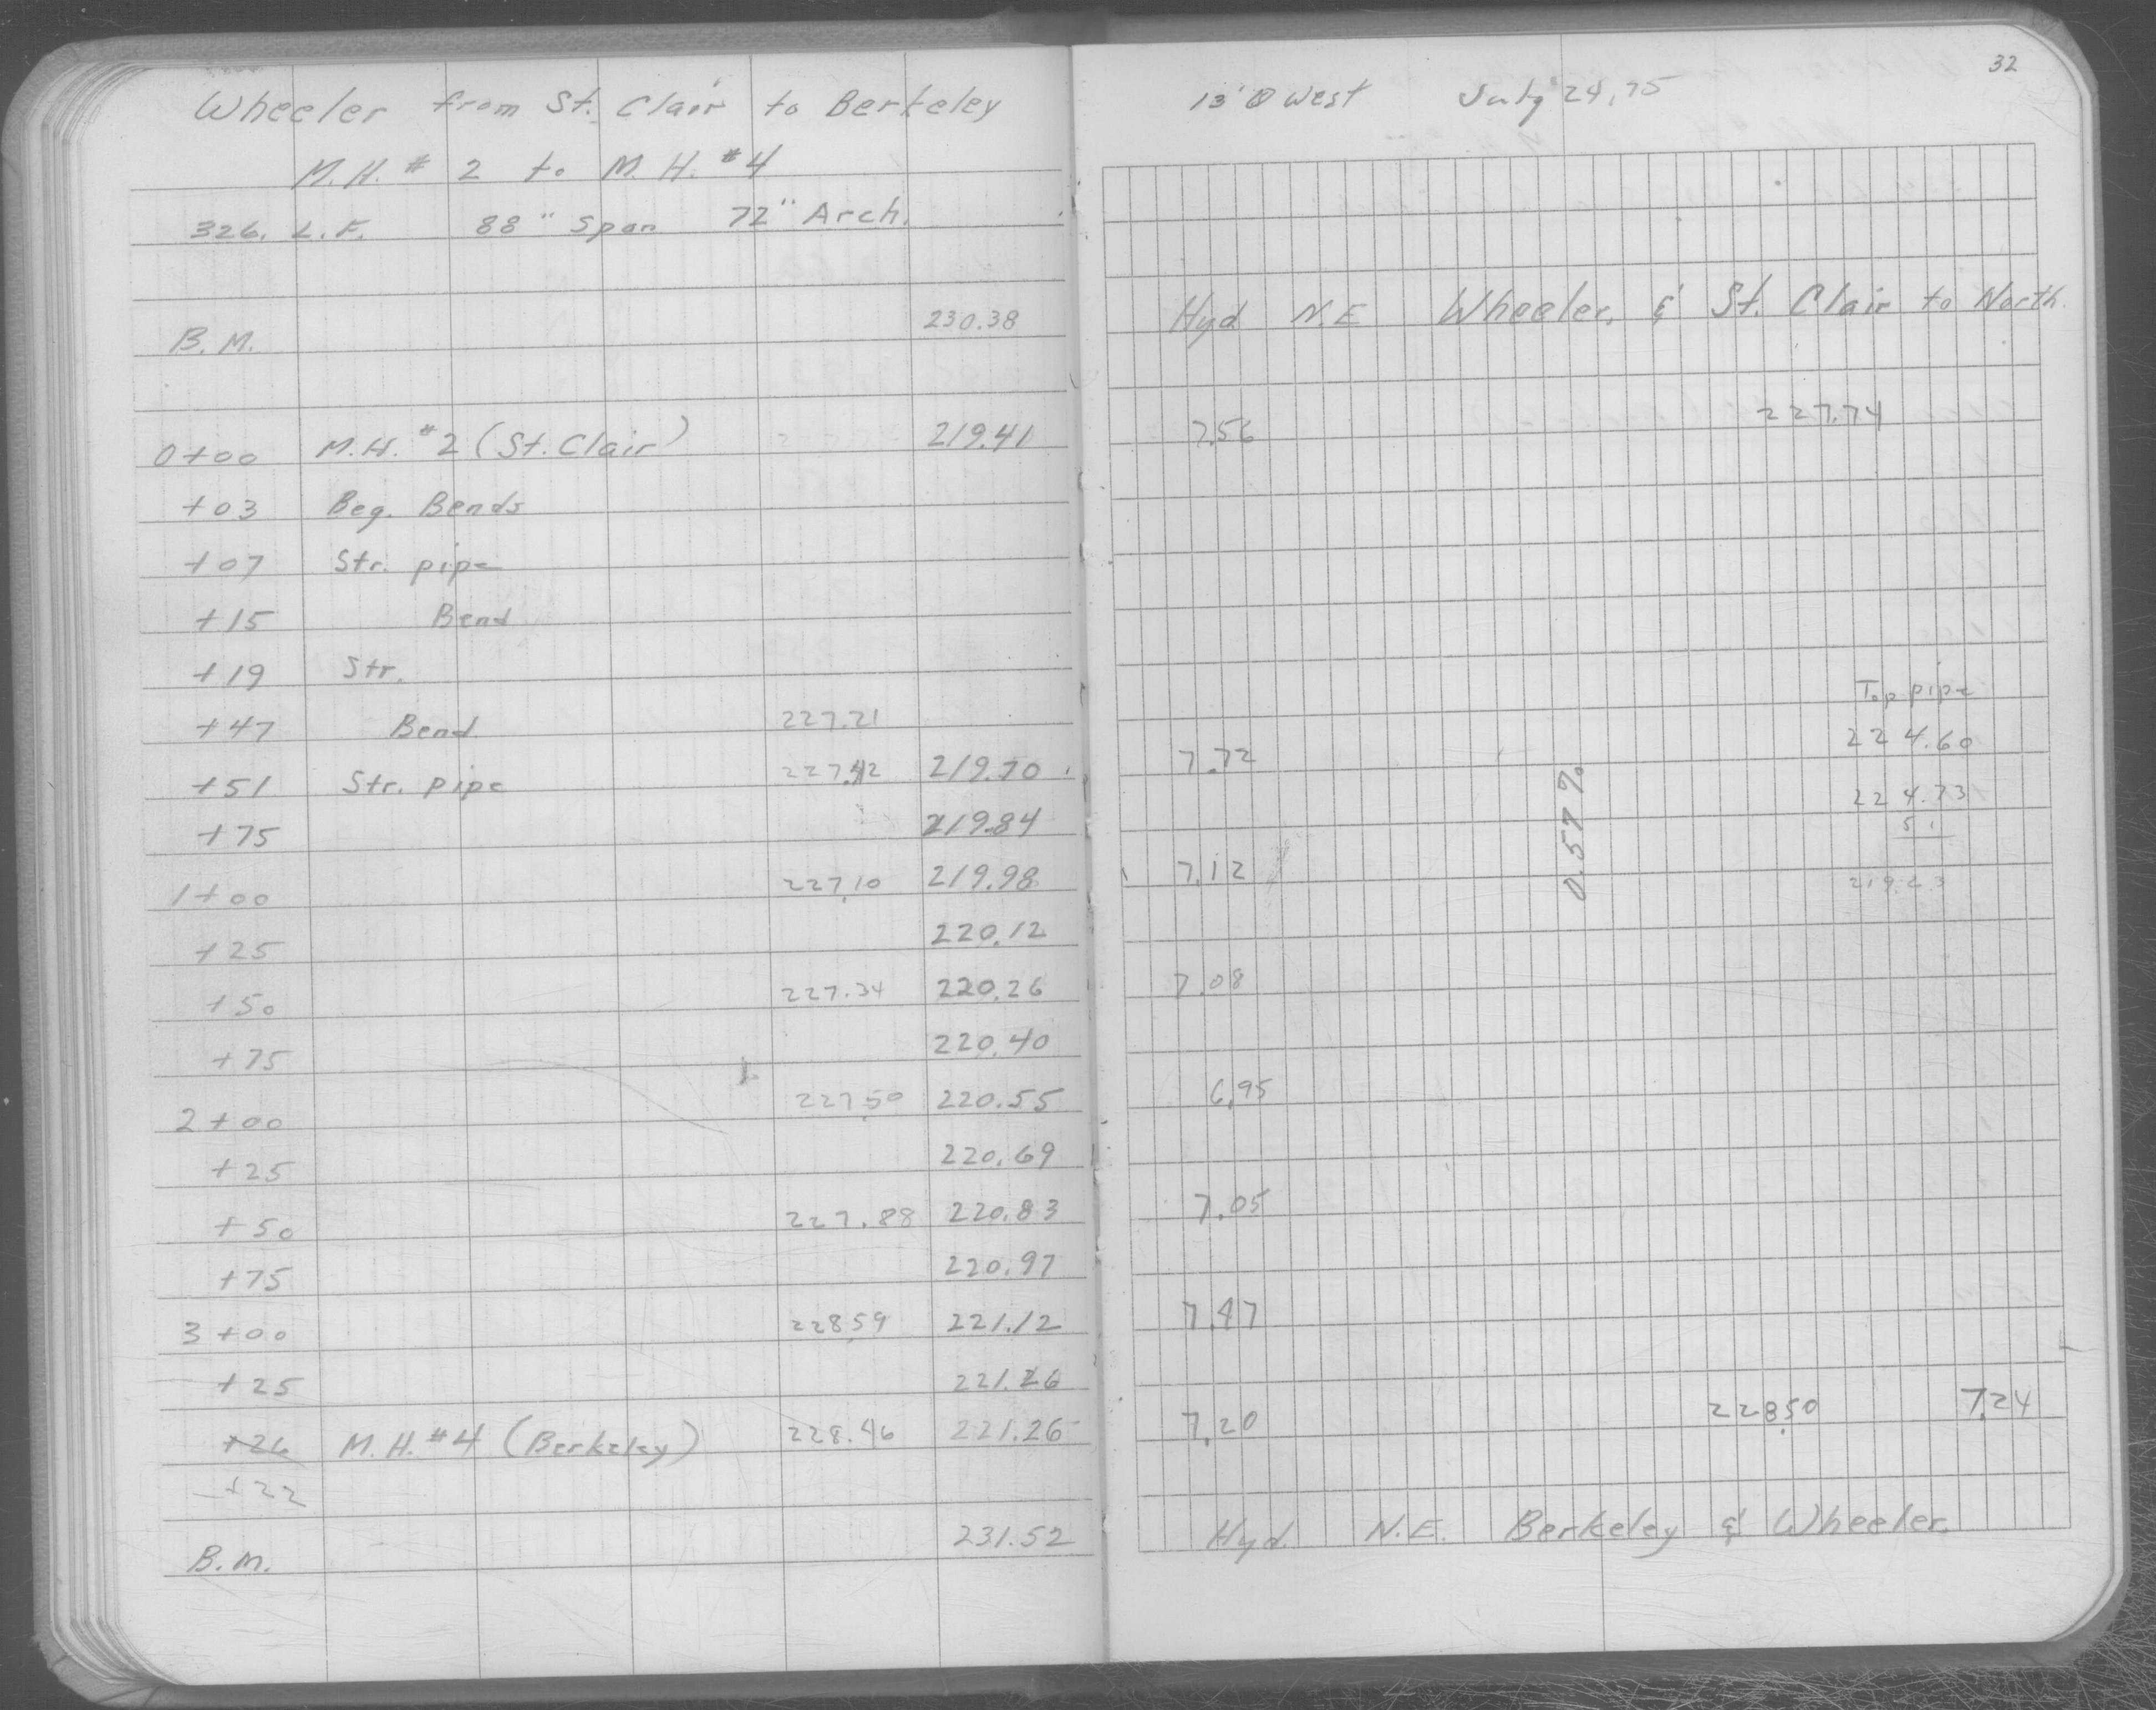 Wheeler from St. Clair to Berkeley
M.H. # 2 to M.H. #4
326. L.F. 88" Span 72" Arch.
B.M. 230.38
0+00 M.H. #2 (St. Clair) 219.41
+03 Beg. Bends
+07 Str. pipe
+15 Bend
+19 Str.
+47 Bend 227.21
+51 Str. pipe 227.42 219.70
+75 219.84
1+00 227.10 219.98
+25 220.12
+50 227.34 220.26
+75 220.40
2+00 227.50 220.55
+25 220.69
+50 227.88 220.83
+75 220.97
3+00 228.59 221.12
+25 221.26
+26 M.H. #4 (Berkeley) 228.46 221.26
+22
B.M. 231.52
32
13' @ West July 24, 75
Hyd N.E Wheeler, & St. Clair to North.
7.56 227.74
Top pipe
7.72 224.60
0.57%
224.73
51
7.12 219.63
7.08
6.95
7.05
7.47
7.20 228.50 7.24
Hyd. N.E. Berkeley & Wheeler.